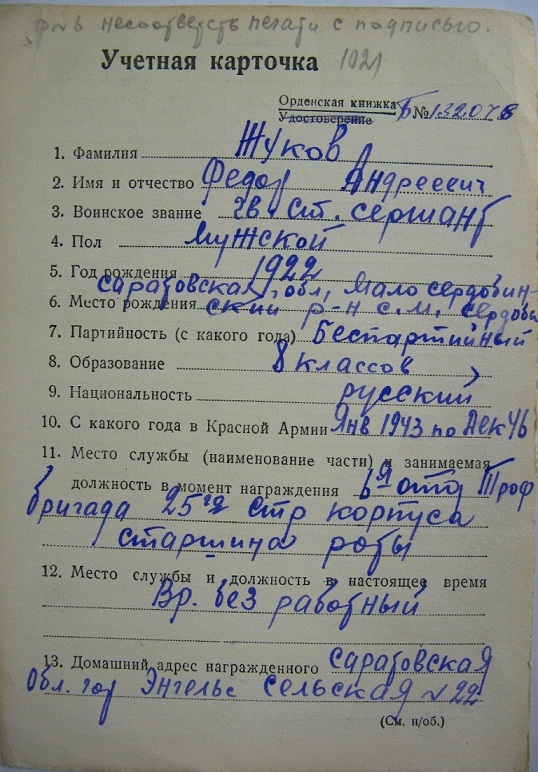 несоответств печати с подписью.
Учетная карточка 1021
Орденская книжка Б № 132078
Удостоверение
1. Фамилия Жуков
2. Имя и отчество Федор Андреевич
3. Воинское звание гв. ст. сержант
4. Пол мужской
5. Год рождения 1922
Саратовская обл, Мало сердобин-
6. Место рождения ский р-н с. м. сердоба
7. Партийность (с какого года) Беспартийный
8. Образование 8 классов
9. Национальность русский
10. С какого года в Красной Армии Янв 1943 по Дек 46
11. Место службы (наименование части) и занимаемая
должность в момент награждения 6я отд Троф
бригада 25го стр корпуса
старшина роты
12. Место службы и должность в настоящее время
Вр. без работный
13. Домашний адрес награжденного Саратовская
Обл. гор Энгельс Сельская № 22
(См. н/об.)